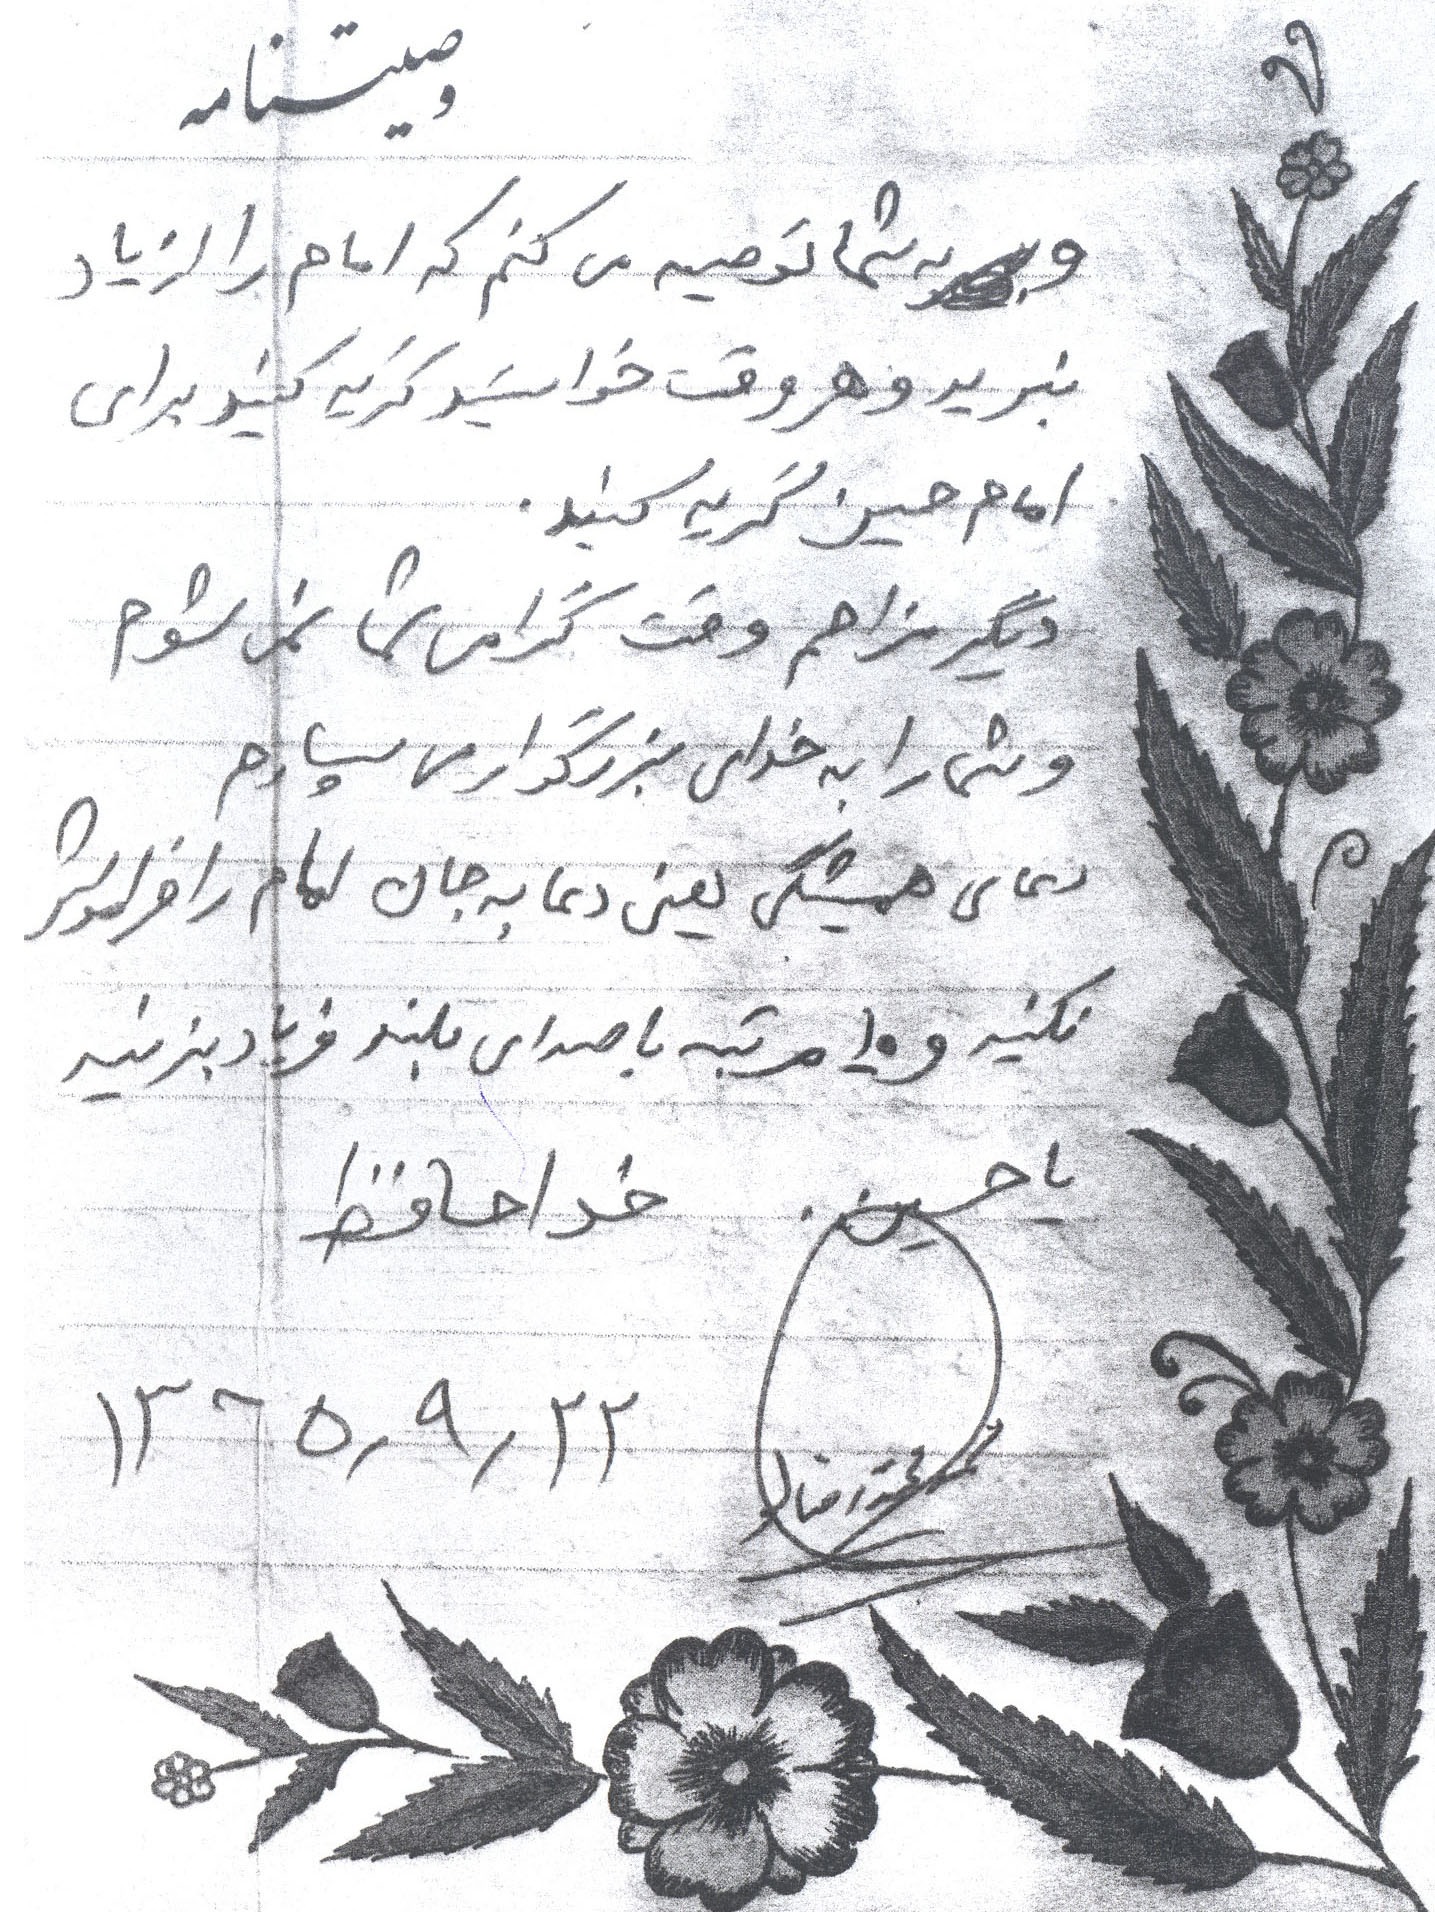 وصیتنامه
و به شما توصیه می کنم که امام را از یاد
نبرید و هر وقت خواستید گریه کنید برای
امام حسین گریه کنید.
دیگر مزاحم وقت گرامی شما نمی شوم
و شما را به خدای بزرگوار می سپارم
دعای همیشگی یعنی دعا به جان امام را فراموش
نکنید و ۱۰ مرتبه با صدای بلند فریاد بزنید
یا حسین. خداحافظ
۲۲٫۹٫۱۳۶۵